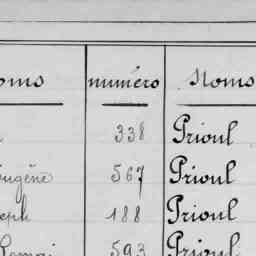 noms numéro Noms
338 Prioul
Eugène 567 Prioul
seph 188 Prioul
Romai 593 Prioul